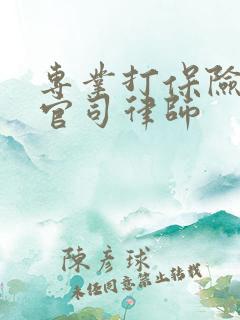 專業打保險
官司律師
陳彥球
未經同意禁止转载